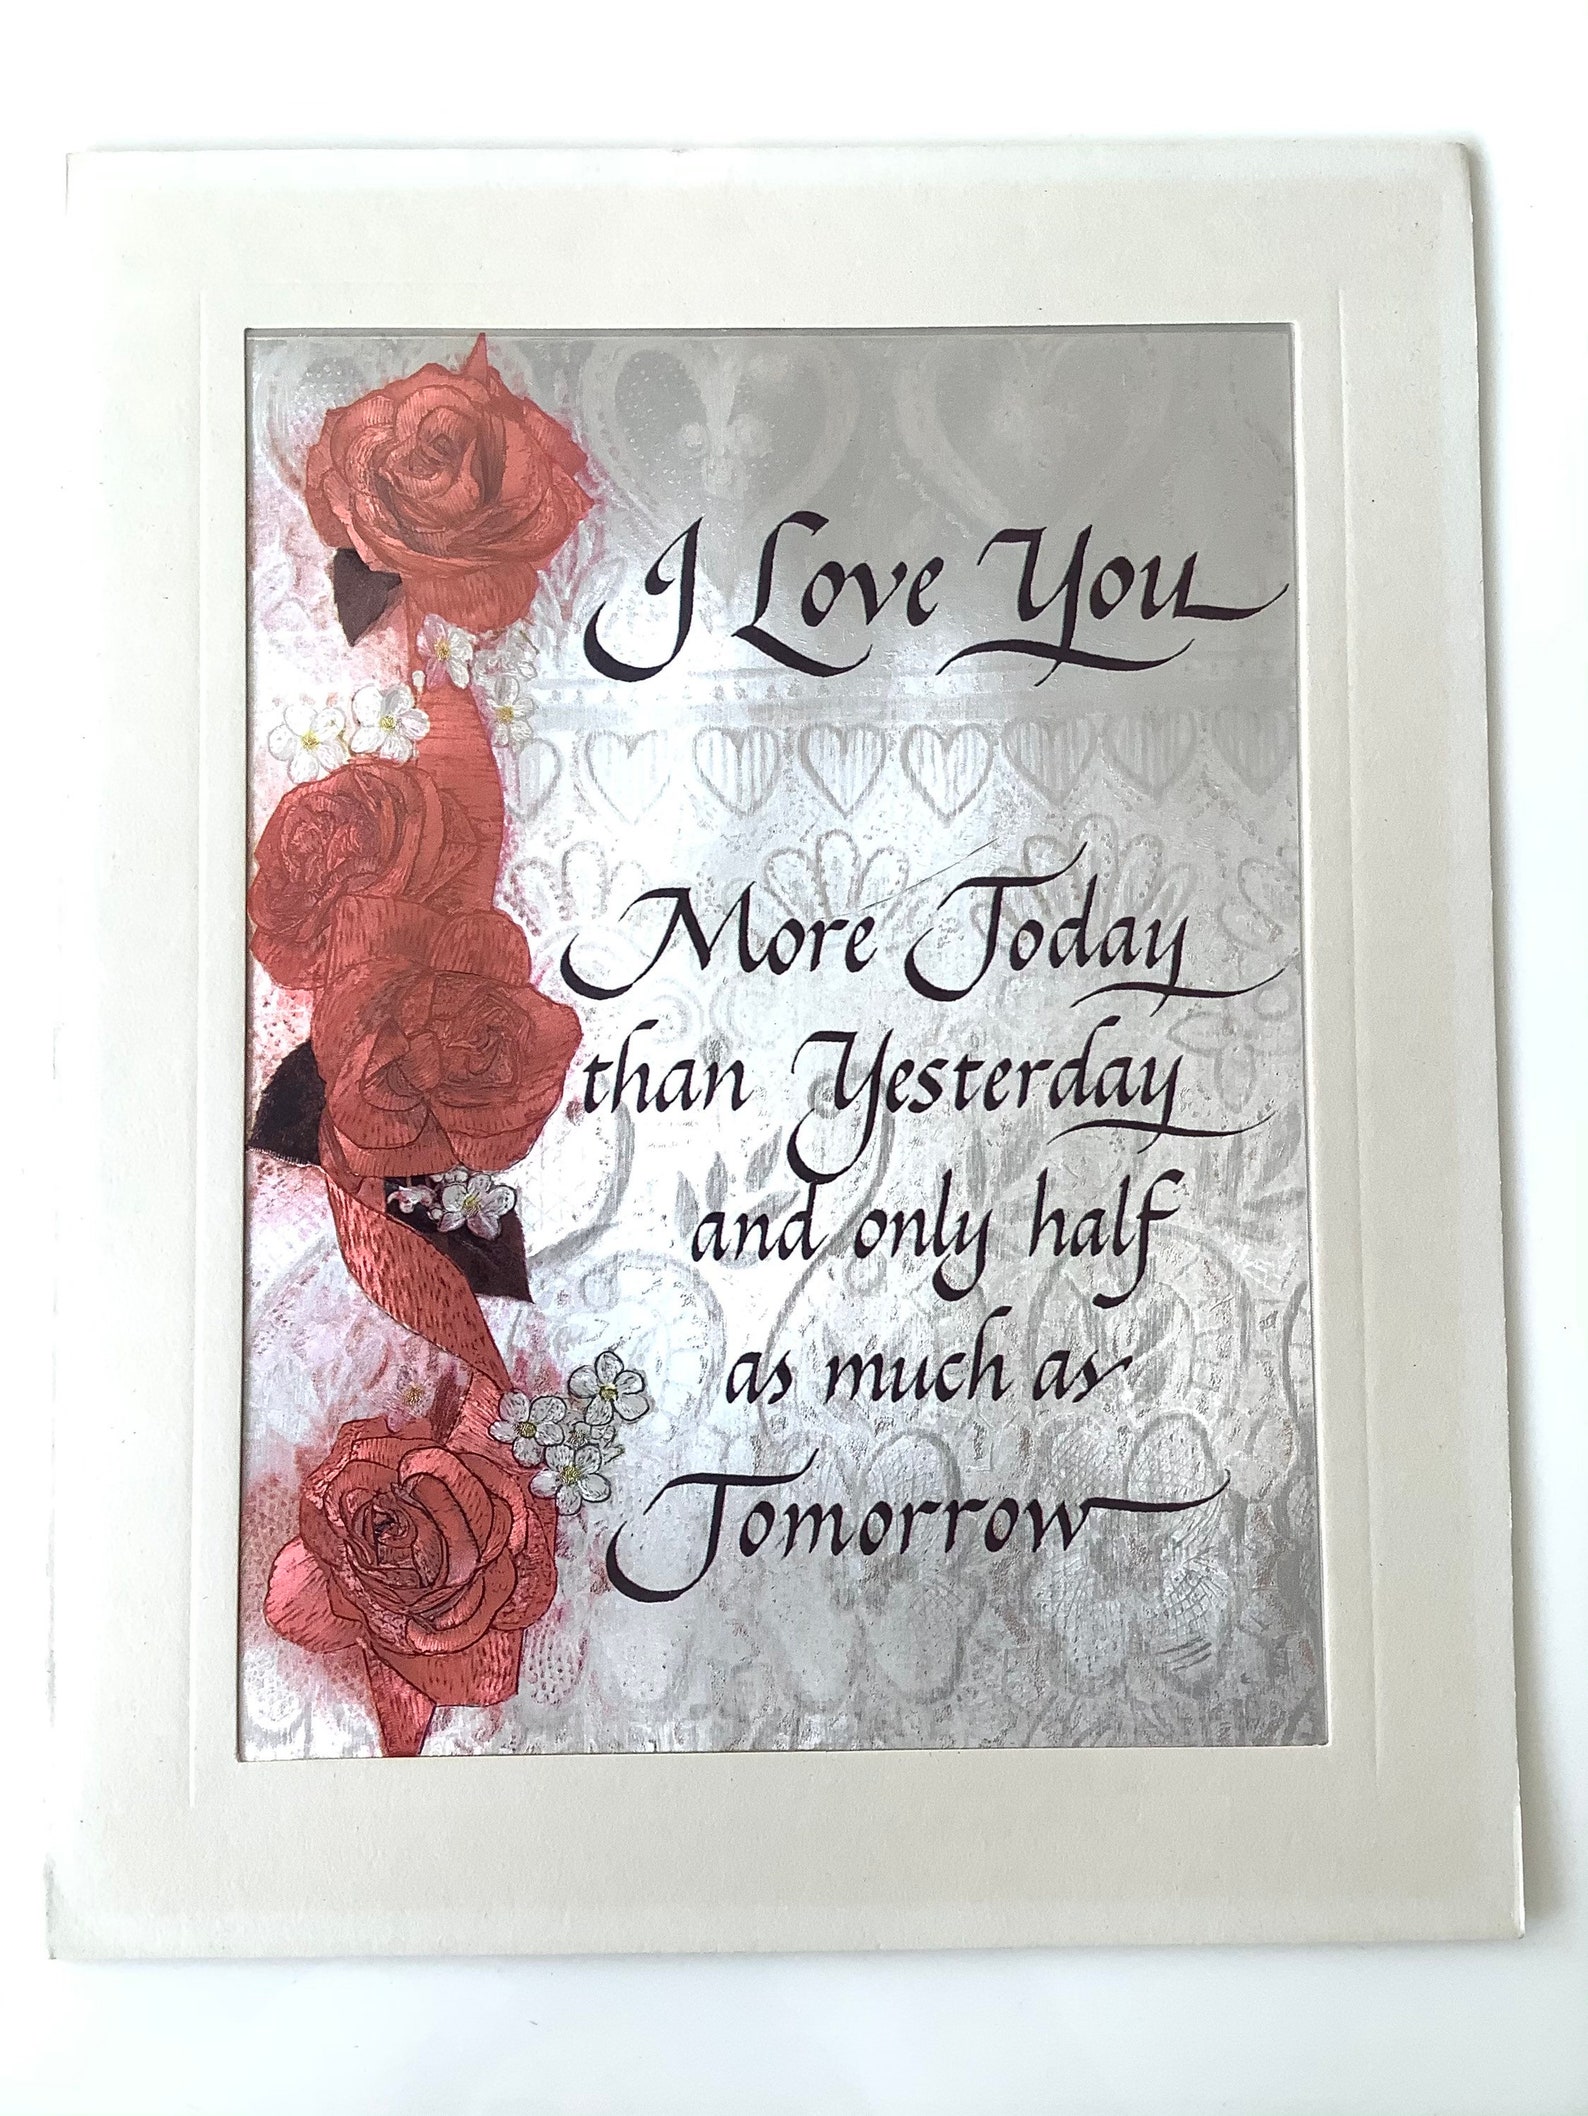 I Love You
More Today
than Yesterday
and only half
as much as
Tomorrow